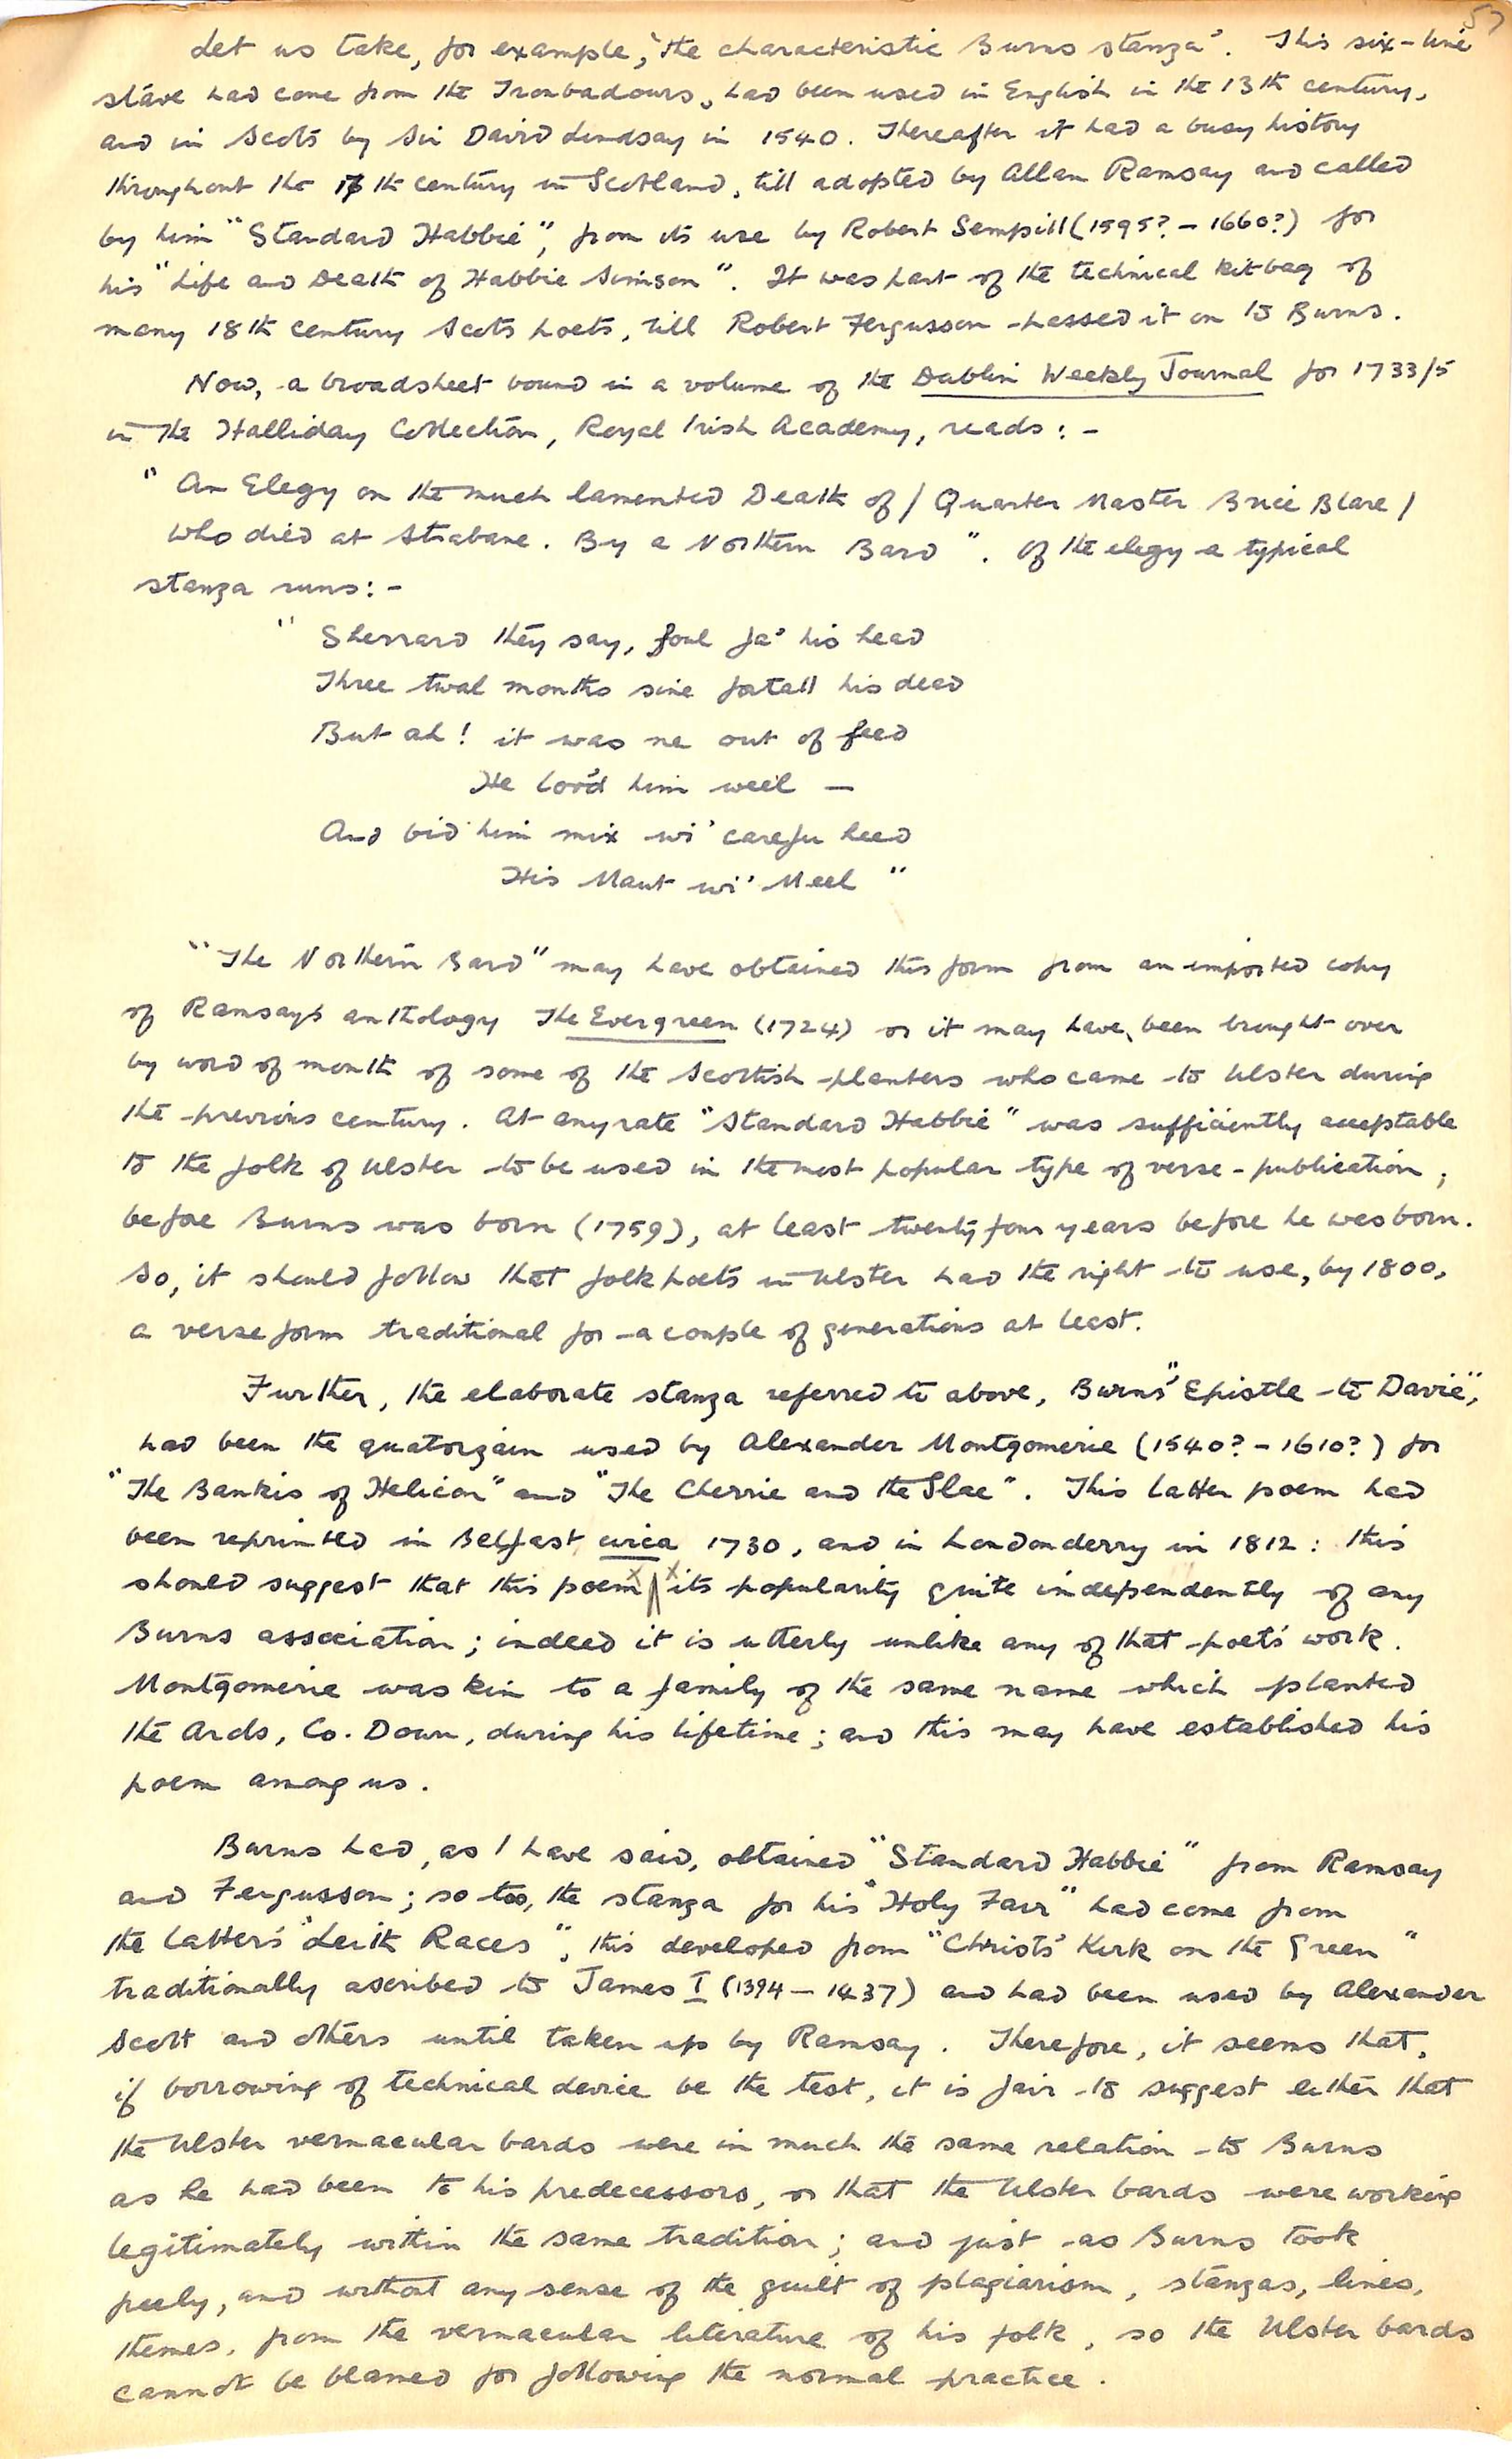 53
Let us take, for example, "the characteristic Burns stanza". This six-line
stave had come from the Troubadours, had been used in English in the 13th century,
and in Scots by Sir David Lindsay in 1540. Thereafter it had a busy history
throughout the 17th century in Scotland, till adopted by Allan Ramsay and called
by him "Standard Habbie", from its use by Robert Sempill (1595? - 1660?) for
his "Life and Death of Habbie Simson". It was part of the technical kit-bag of
many 18th century Scots poets, till Robert Fergusson passed it on to Burns.
Now, a broadsheet bound in a volume of the Dublin Weekly Journal for 1733/5
in the Halliday Collection, Royal Irish Academy, reads: -
" An Elegy on the much lamented Death of / Quarter Master Brice Blare /
who died at Strabane. By a Northern Bard". Of the elegy a typical
stanza runs: -
" Sherrard they say, foul fa' his head
Three twal months sine fortell his dead
But ah! it was ne out of feed
He lov'd him weel —
And bid him mix wi' carefu heed
His Maut wi' Meel "
"The Northern Bard" may have obtained this form from an imported copy
of Ramsay's anthology The Evergreen (1724) or it may have, been brought over
by word of mouth of some of the Scottish planters who came to Ulster during
the previous century. At anyrate "Standard Habbie" was sufficiently acceptable
to the folk of Ulster to be used in the most popular type of verse-publication,
before Burns was born (1759), at least twenty four years before he was born.
So, it should follow that folk poets in Ulster had the right to use, by 1800,
a verse form traditional for a couple of generations at least.
Further, the elaborate stanza referred to above, Burns' "Epistle to Davie",
had been the quatorzain used by Alexander Montgomerie (1540? - 1610?) for
"The Bankis of Helicon" and "The Cherrie and the Slae". This latter poem had
been reprinted in Belfast circa 1730, and in Londonderry in 1812: this
should suggest that this poem x x its popularity quite independently of any
Burns association; indeed it is utterly unlike any of that poet's work.
Montgomerie was kin to a family of the same name which planted
the Ards, Co. Down, during his lifetime; and this may have established his
poem among us.
Burns had, as I have said, obtained "Standard Habbie" from Ramsay
and Fergusson; so too, the stanza for his "Holy Fair" had come from
the latter's "Leith Races", this developed from "Christ's Kirk on the Green"
traditionally ascribed to James I (1394 - 1437) and had been used by Alexander
Scott and others until taken up by Ramsay. Therefore, it seems that,
if borrowing of technical device be the test, it is fair to suggest either that
the Ulster vernacular bards were in much the same relation to Burns
as he had been to his predecessors, or that the Ulster bards were working
legitimately within the same tradition; and just as Burns took
freely, and without any sense of the guilt of plagiarism, stanzas, lines,
themes, from the vernacular literature of his folk, so the Ulster bards
cannot be blamed for following the normal practice.